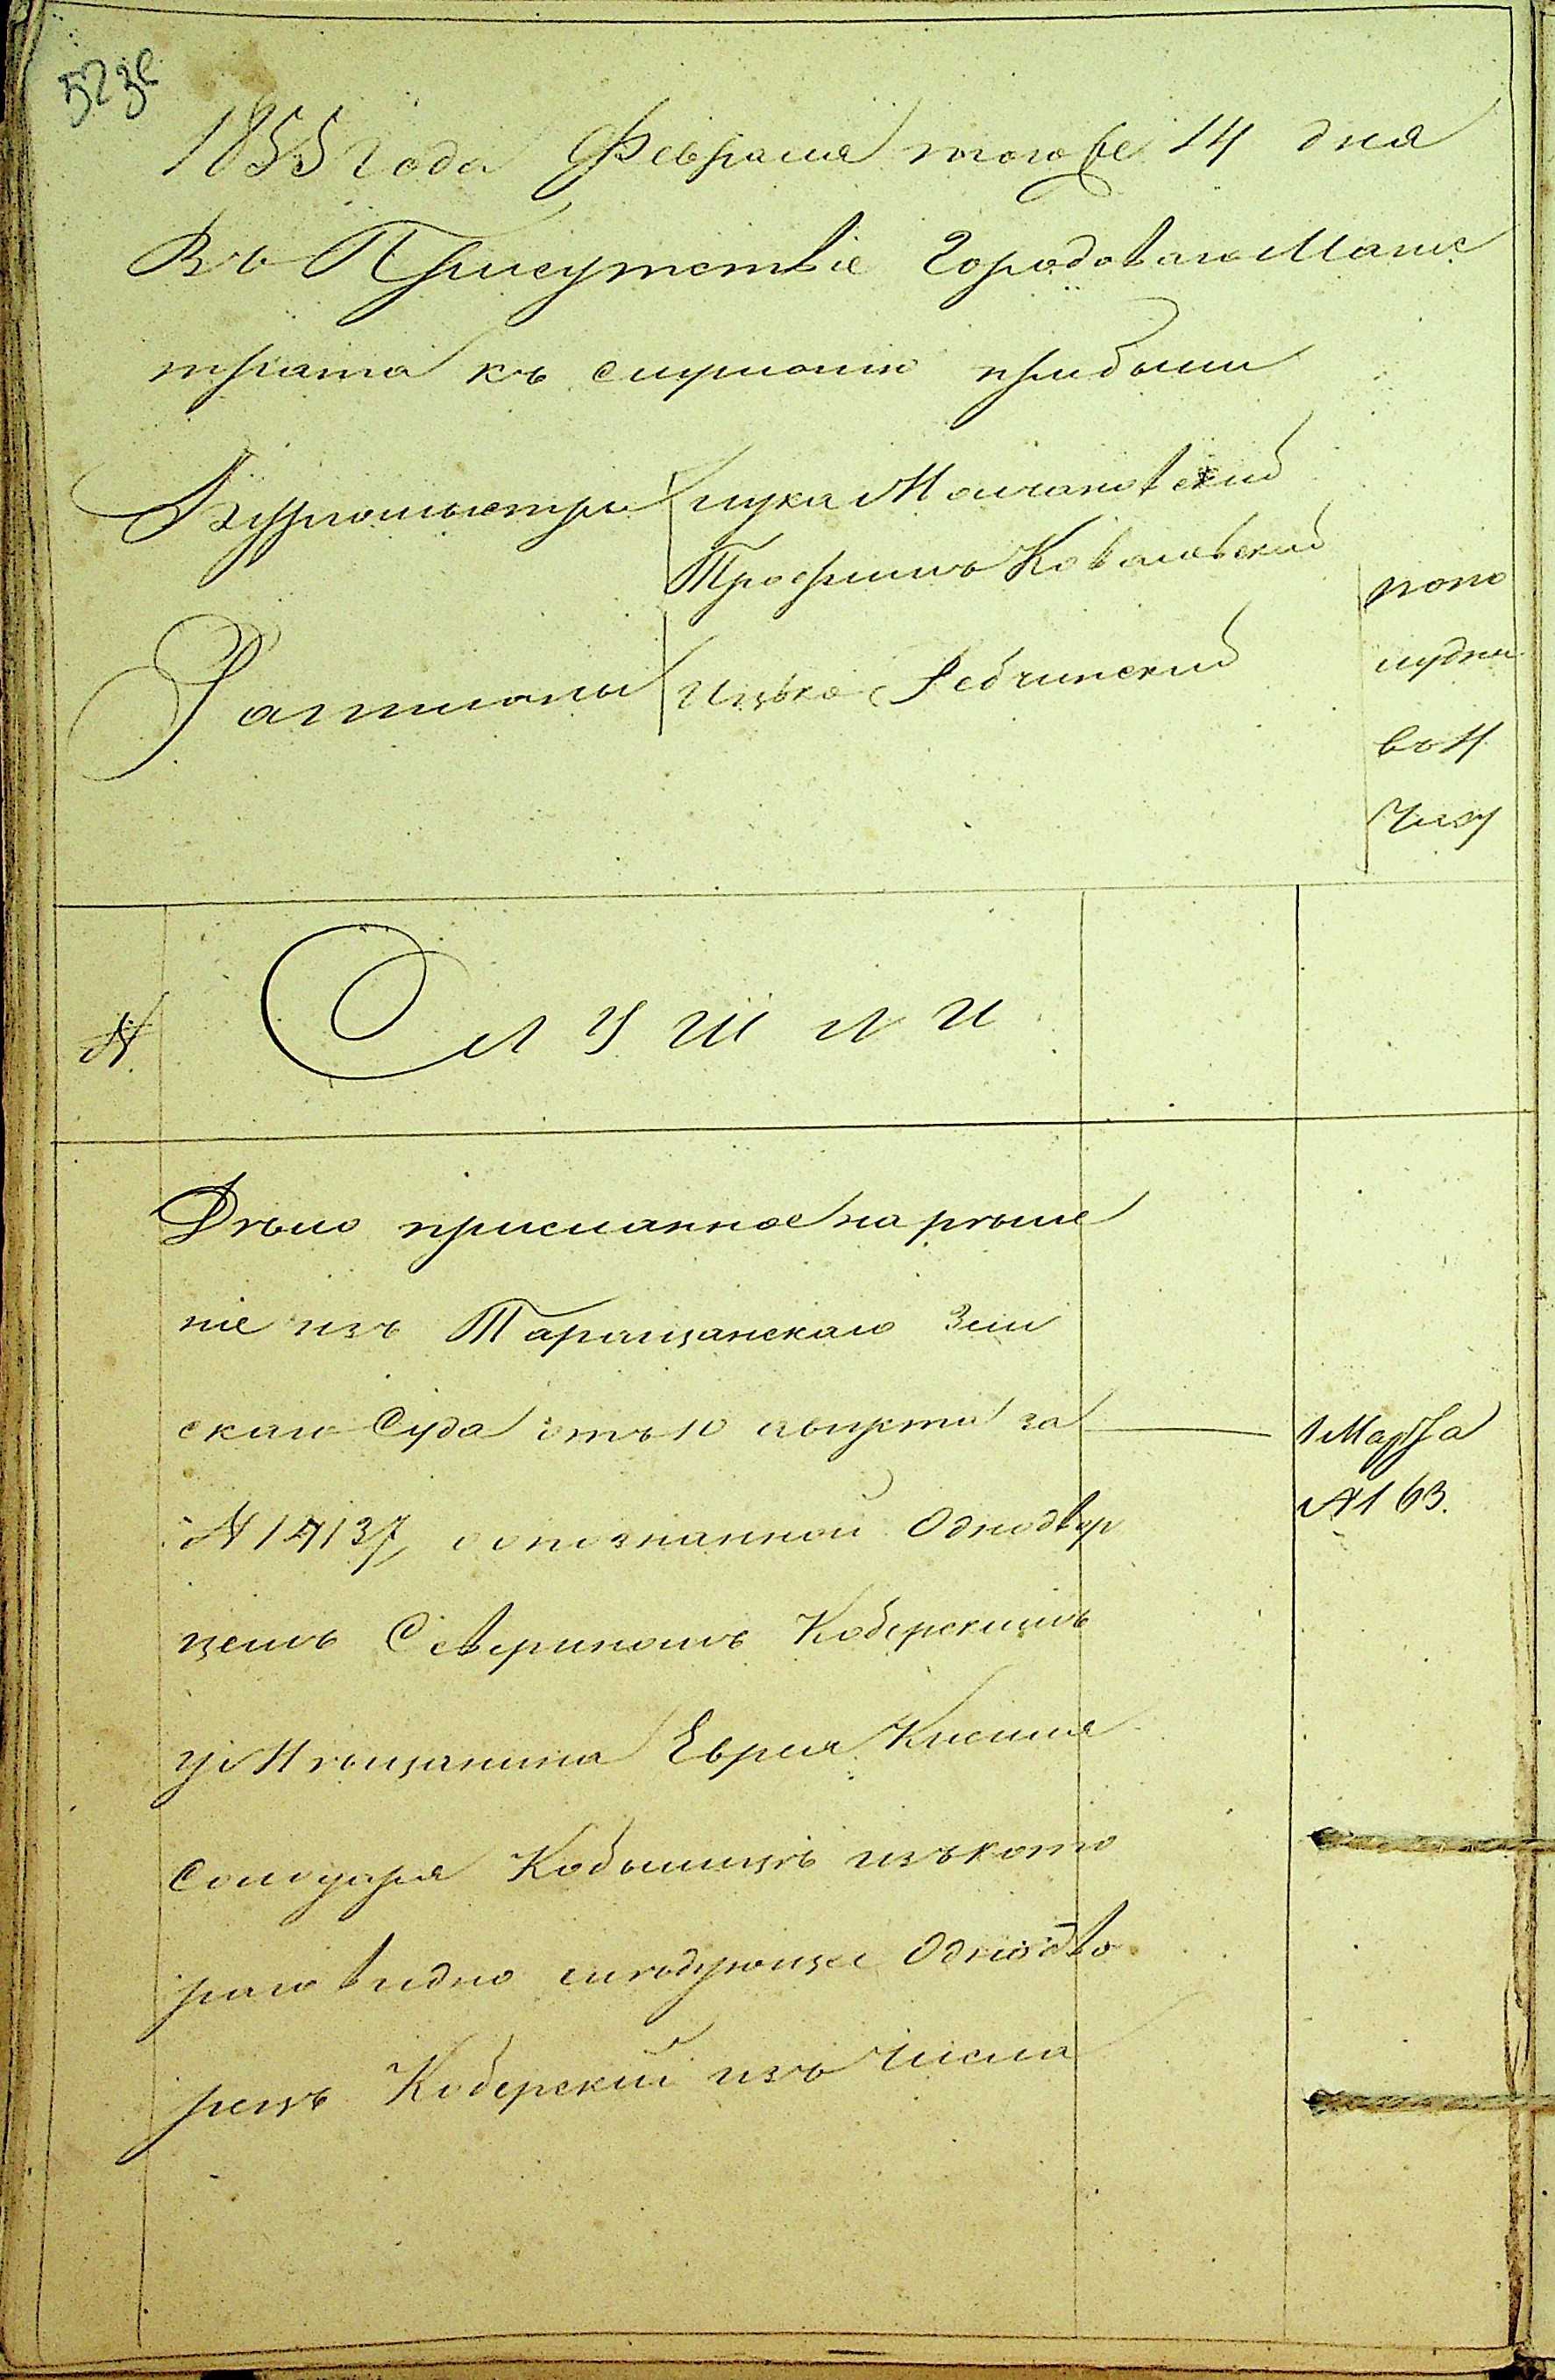 523
1855 года Февраля того же 14 дня
Въ Присутствіе Городоваго Магис
трата къ слушанію прибыли
Бургомистры Лука Молчановский
Трофимъ Ковалевский
Ратманы Ицько Рабчинский
попо
лудни
въ 4
Часу
№ Слушали
Дѣло присланное на рѣше
ніе изъ Таращанскаго Зем
скаго Суда отъ 10 августа за
№ 14137, о опознанной Однодвор
цемъ Севериномъ Коберскимъ
у Мѣщанина Еврея Киселя
Кобылицѣ изъ кото
раго видно слѣдующее Однодво
рецъ Коберский изъ числа
1 Марта
№ 163.